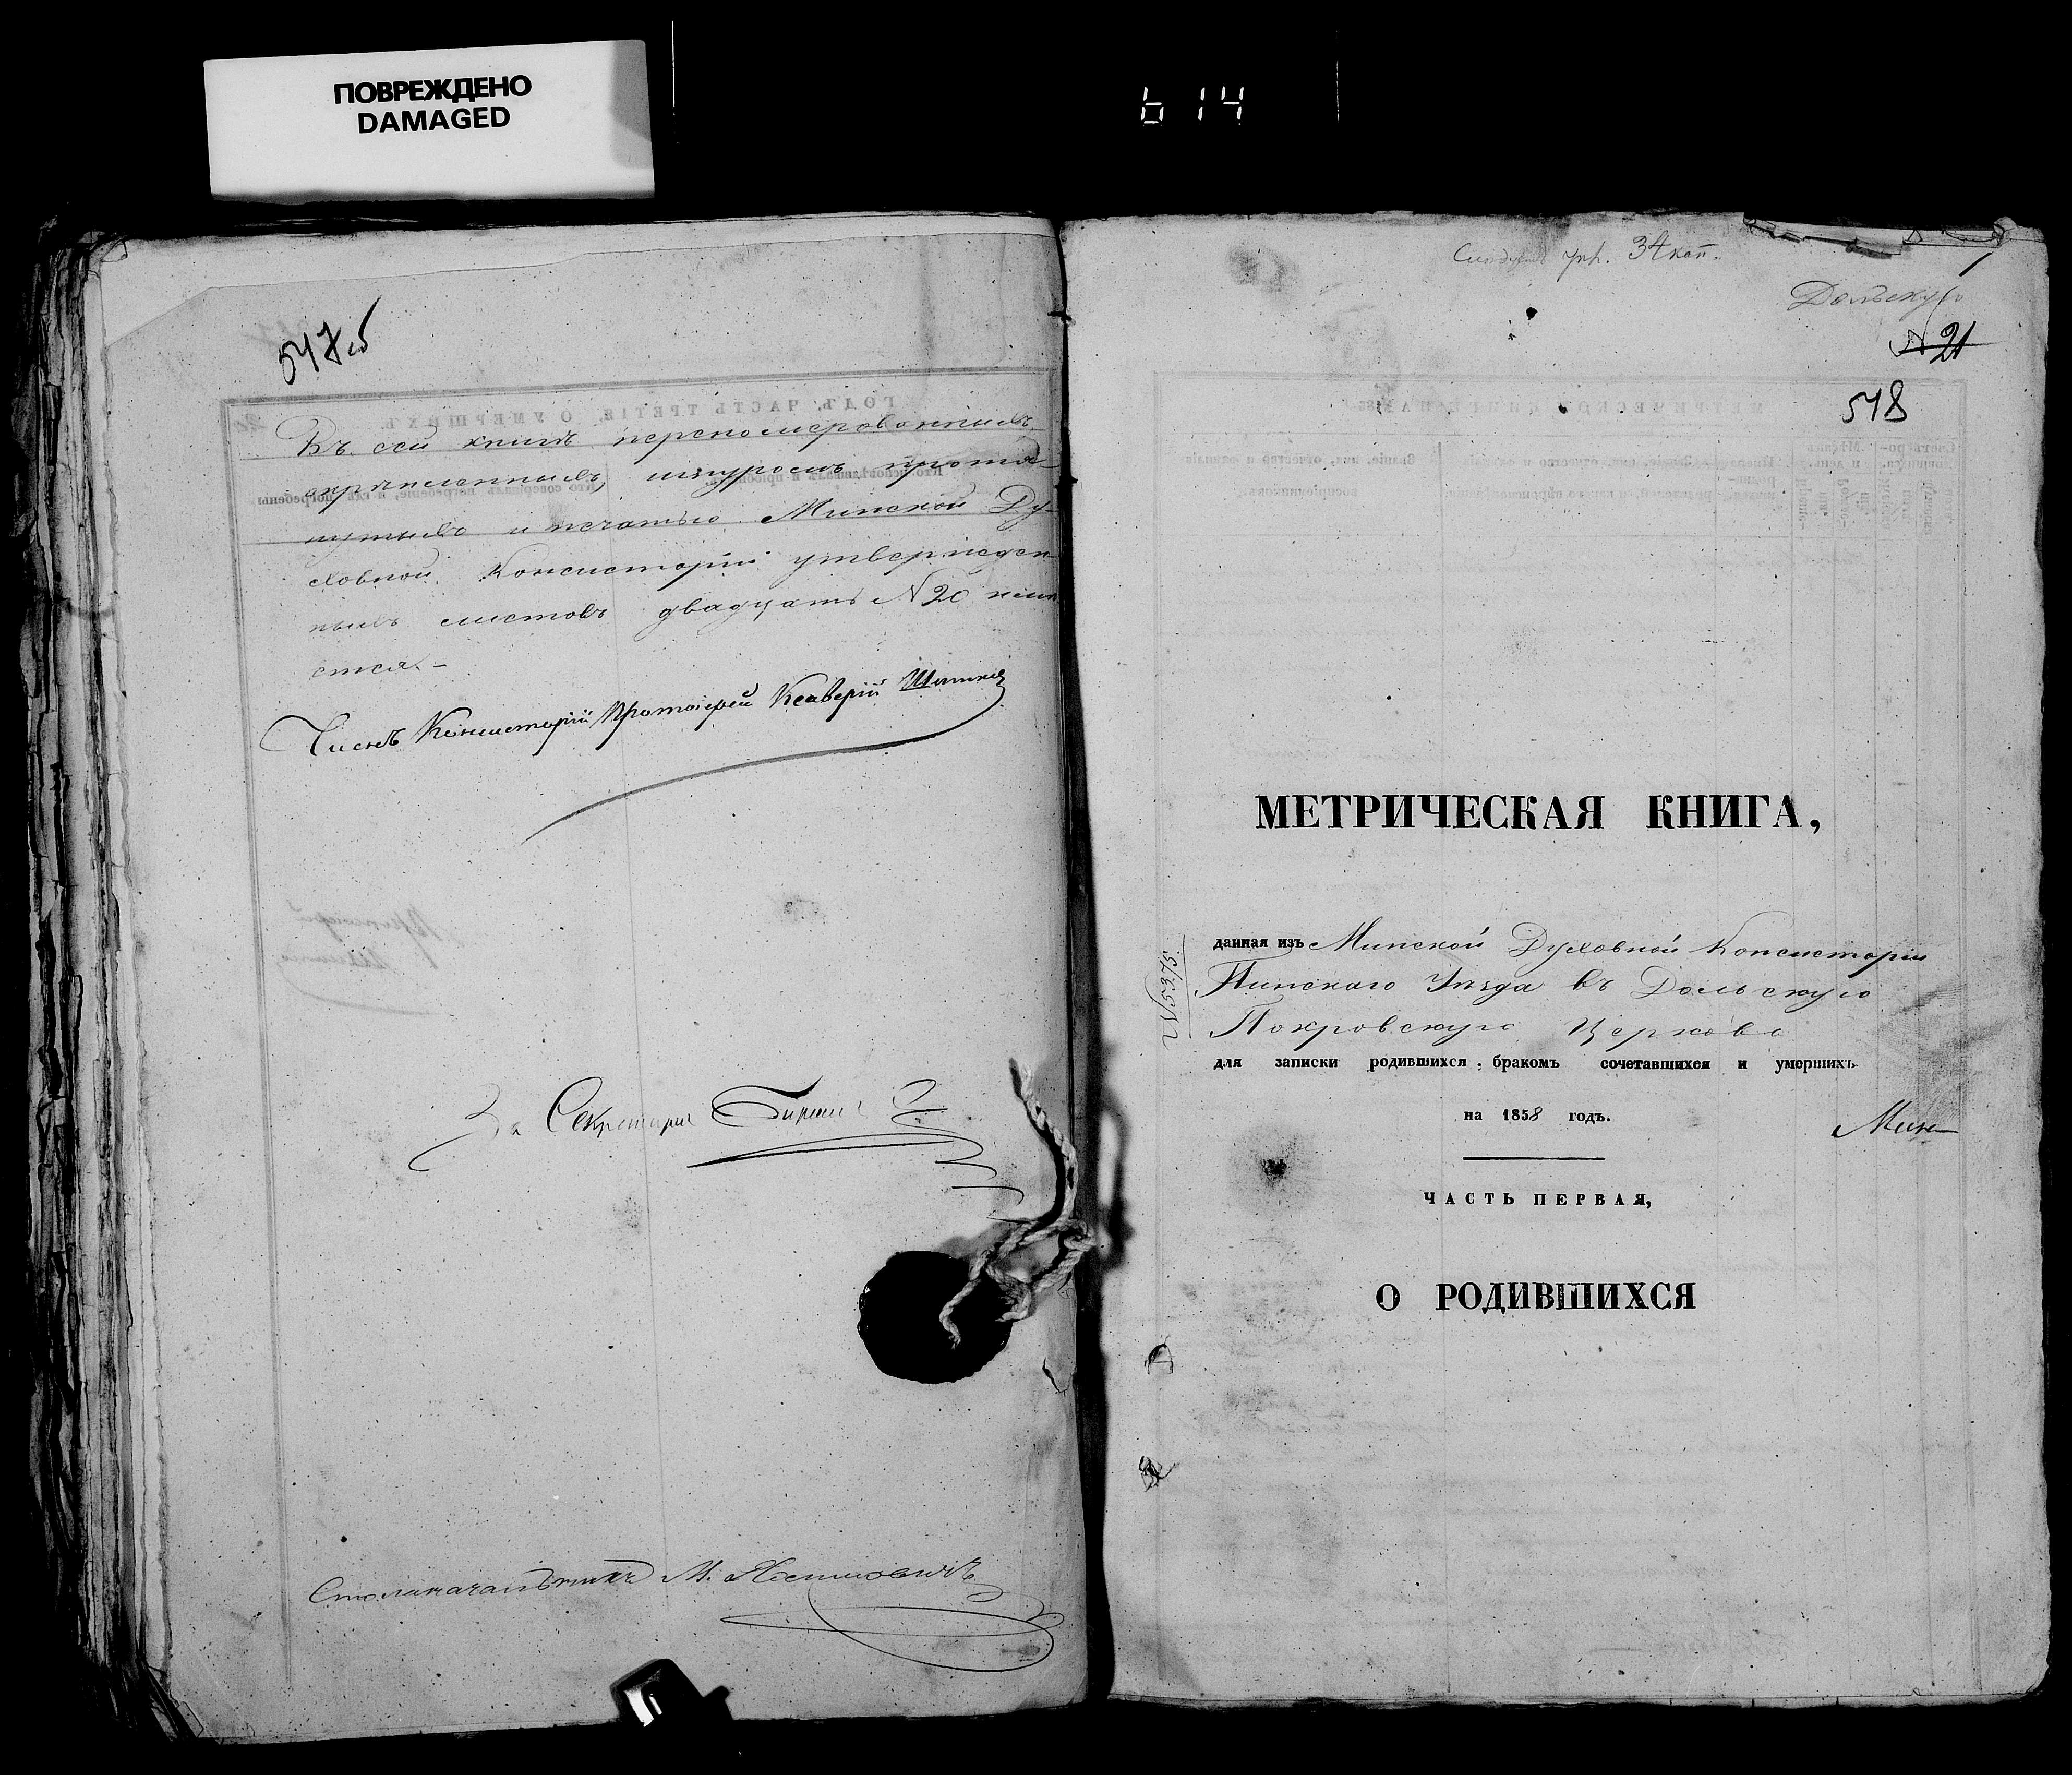 ПОВРЕЖДЕНО
DAMAGED
614
547об
Въ сей книгѣ перенумерованныхъ,
скрѣпленныхъ, шнуромъ протя-
нутыхъ и печатью Минской Ду-
ховной Консисторіи утвержден-
ныхъ листовъ двадцать №20 имѣ
ется.-
Членъ Консисторіи Протоіерей Ксаверій
За Секретаря
Столоначальникъ М.
34 коп.
Дольскую
№ 21
548
МЕТРИЧЕСКАЯ КНИГА,
данная изъ Минской Духовной Консисторіи
Пинскаго Уѣзда въ Дольскую
Покровскую Церковь
№5375.
для записки родившихся, бракомъ сочетавшихся и умершихъ
на 1858 годъ.
Мин-
ЧАСТЬ ПЕРВАЯ,
О РОДИВШИХСЯ